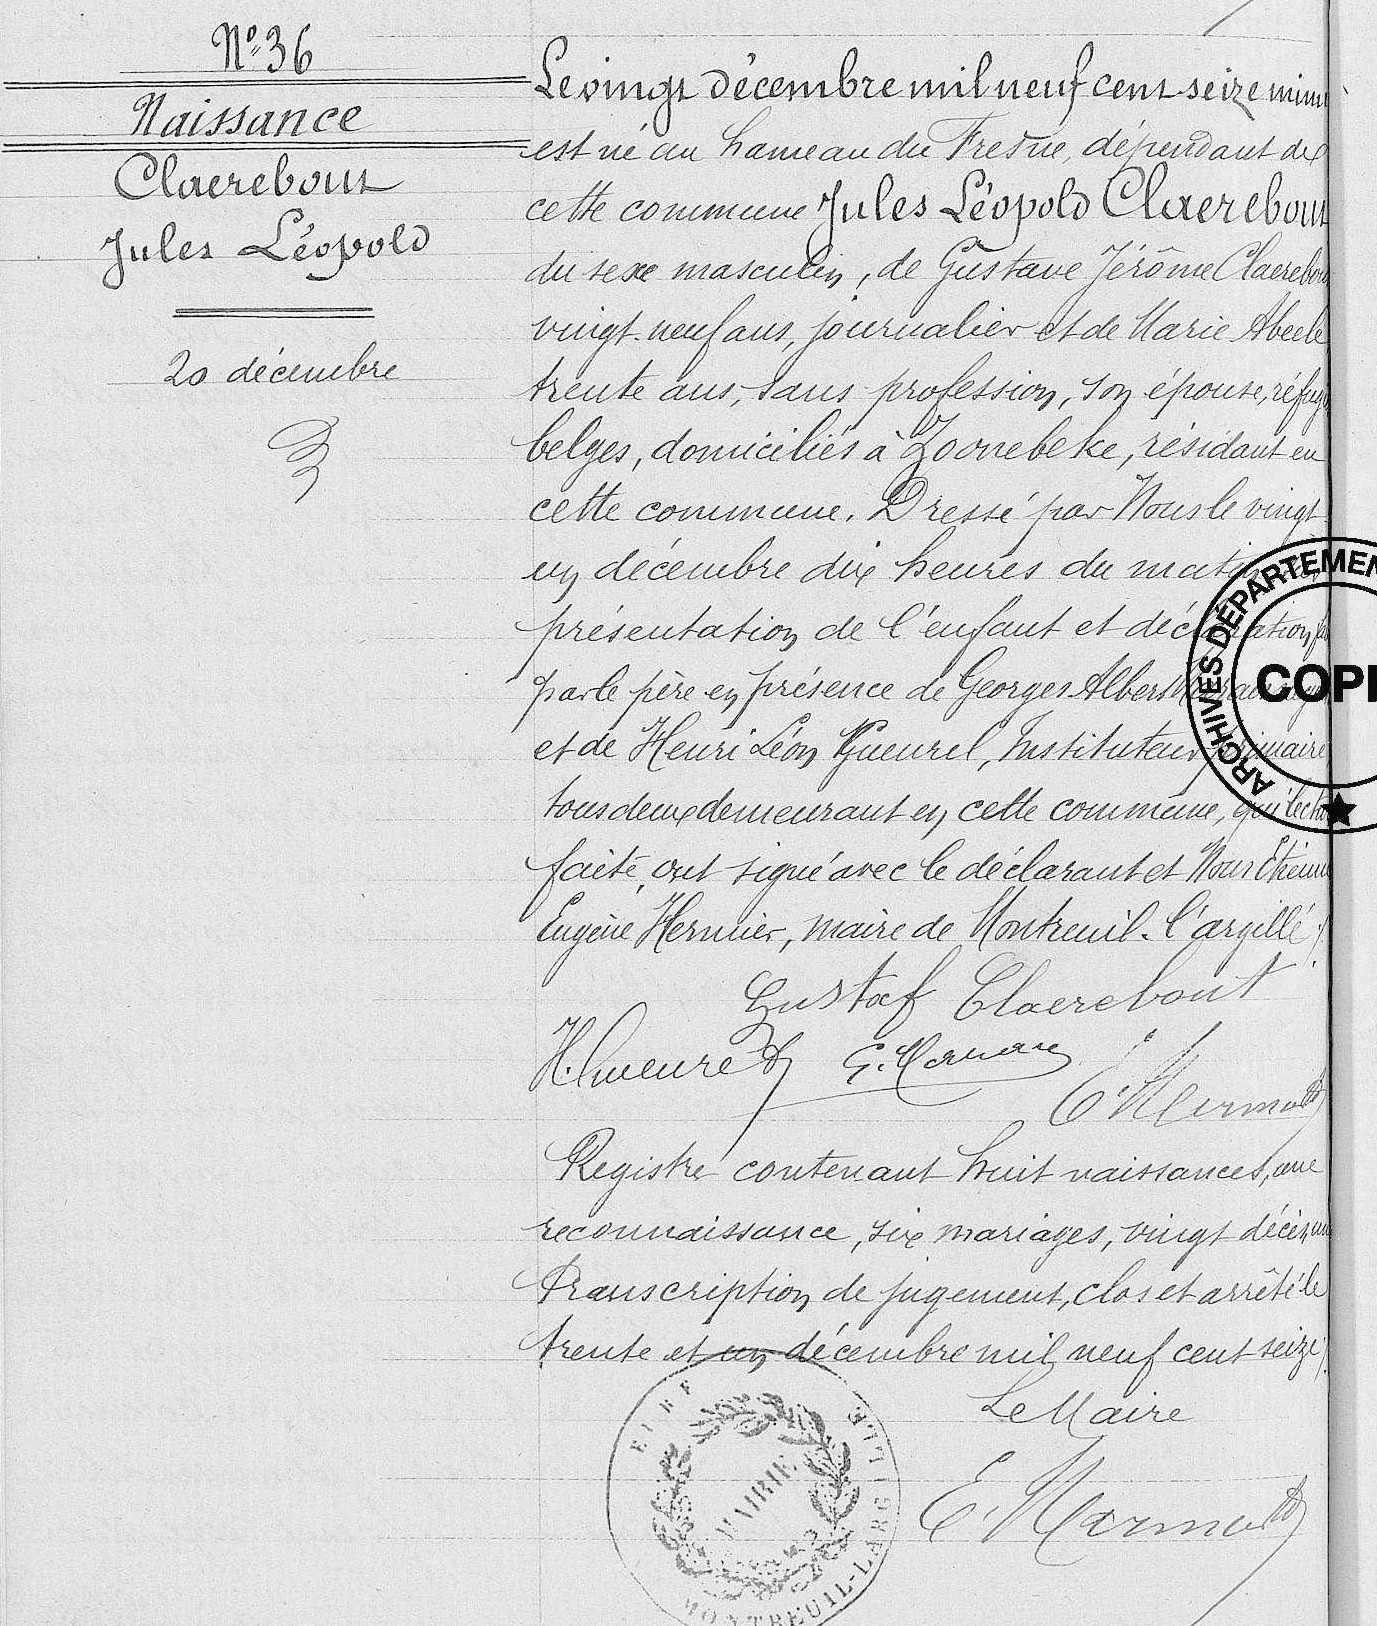 N° 36
Naissance
Claerebout
Jules Léopold
20 décembre
Le vingt décembre mil neuf cent seize minu
est né au hameau du Fresne, dépendant de
cette commune Jules Léopold Claerebout
du sexe masculin, de Gustave Jérôme Claerebou
vingt-neuf ans, journalier et de Marie Abeele
trente ans, sans profession, son épouse, réfug
belges, domiciliés à Zoonebeke, résidant en
cette commune. Dressé par Nous le vingt
un décembre dix heures du matin
présentation de l'enfant et déclaration
par le père en présence de Georges Albert
et de Henri Léon Gueurel, Instituteur primaire
tous deux demeurant en cette commune, qui lecture
faite, ont signé avec le déclarant et Nous Etienne
Eugène Hermier, maire de Montreuil-l'argillé.
Gustaf Claerebout
Registre contenant huit naissances, une
reconnaissance, six mariages, vingt décès, une
transcription de jugement, clos et arrêté le
trente et un décembre mil neuf cent seize
Le Maire
MAIRIE
EURE
MONTREUIL-L'ARGILLE
ARCHIVES DÉPARTEMEN
COPI